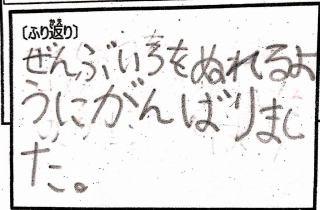 〔ふり返り〕
ぜんぶいろをぬれるよ
うにがんばりまし
た。